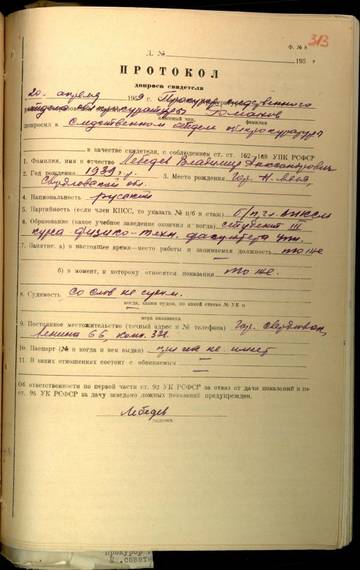 313
Ф. № 8
Л. №
195 г
ПРОТОКОЛ
допроса свидетеля
20 апреля 1959 г. Прокурор следственного
отдела облпрокуратуры Романов
классный чин, фамилия
допросил в Следственном отделе облпрокуратуры
в качестве свидетеля, с соблюдением ст. ст. 162—168 УПК РСФСР
1. Фамилия, имя и отчество Лебедев Владимир Александрович
2. Год рождения 1939 г. 3. Место рождения гор. Н. Ляля
Свердловской обл.
4. Национальность русский
5. Партийность (если член КПСС, то указать № п/б и стаж) б/п, чл. ВЛКСМ
6. Образование (какое учебное заведение окончил и когда) студент III
курса физико-техн. факультета УПИ
7. Занятие: а) в настоящее время—место работы и занимаемая должность то же
б) в момент, к которому относятся показания то же
8. Судимость со слов не судим.
когда, каким судом, по какой статье УК и
мера наказания
9. Постоянное местожительство (точный адрес и № телефона) гор. Свердловск,
Ленина 66, комн. 321
10. Паспорт (№ и когда и кем выдан) при себе не имеет
11. В каких отношениях состоит с обвиняемым —
Об ответственности по первой части ст. 92 УК РСФСР за отказ от дачи показаний и по
ст. 95 УК РСФСР за дачу заведомо ложных показаний предупрежден.
Лебедев
подпись
Прокурор